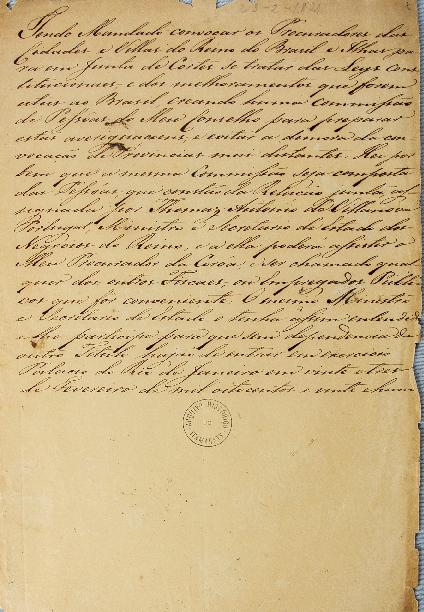 23-2-1821
Tendo Mandado convocar os Procuradores das
Cidades e Villas do Reino do Brasil e Ilhas pa
ra em Junta de Cortes se tratar das Leys cons
titucionaes, e dos melhoramentos que forem
uteis ao Brasil creando huma Commissão
de Pessoas do Meu Conselho para preparar
estas averiguaçoens, e evitar a demora da con
vocação de Provincias mais distantes. Hei por
bem que a mesma Commissão seja composta
das Pessoas, que constão da Relação junta as
signada por Thomaz Antonio de Villanova
Portugal, Ministro e Secretario de Estado dos
Negocios do Reino, e a ella poderá assistir o
Meu Procurador da Coroa, e ser chamado qual
quer dos outros Fiscaes, ou Empregados Publi
cos que for conveniente. O mesmo Ministro
e Secretario de Estado o tenha assim entendido
e lho participe para que sem dependencia de
outro Titulo hajão de entrar em exercicio
Palacio do Rio de Janeiro em vinte e tres
de Fevereiro de mil oitocentos e vinte e hum
ARQUIVO HISTORICO
ITAMARATY